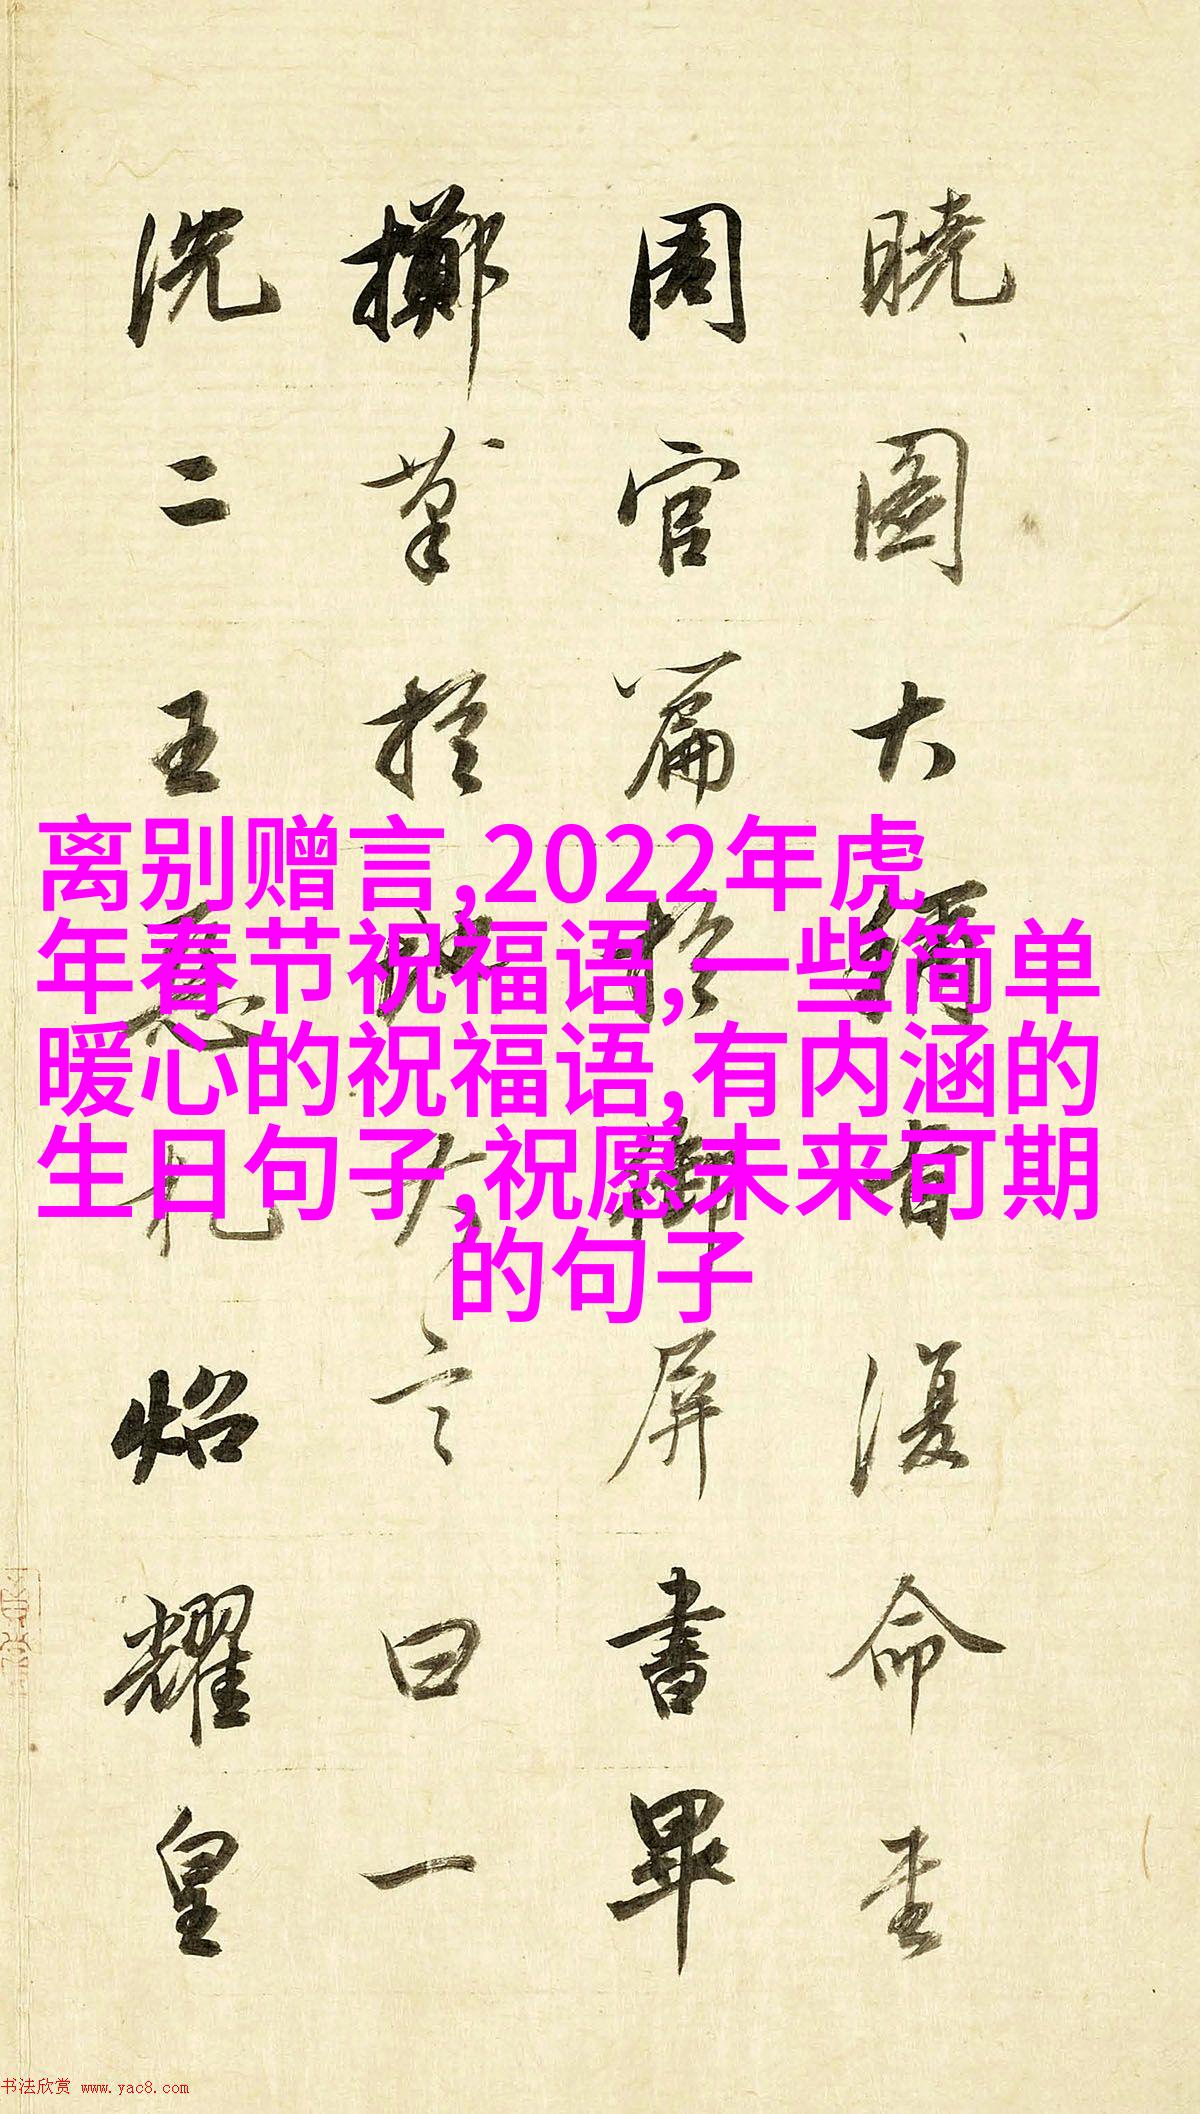 离别赠言,2022年虎
年春节祝福语,一些简单
暖心的祝福语,有内涵的
生日句子,祝愿未来可期
的句子
曉圖大首復命書
周官篇於御屏書畢
擲筆於地大言曰一
洗二王惡札炤耀皇
书法欣赏 www.yac8.com